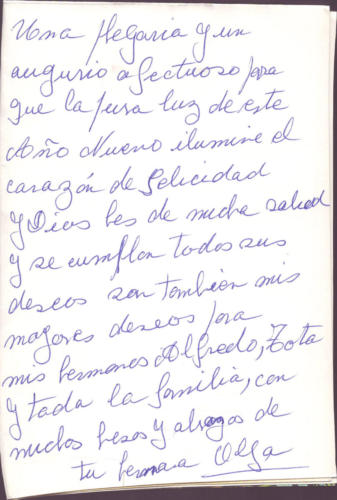 Una plegaria y un
augurio afectuoso para
que la pura luz de este
Año Nuevo ilumine el
corazón de felicidad
y Dios les de mucha salud
y se cumplan todos sus
deseos son tambien mis
mayores deseos para
mis hermanos Alfredo, Tota
y toda la familia, con
muchos besos y abrazos de
tu hermana Olga